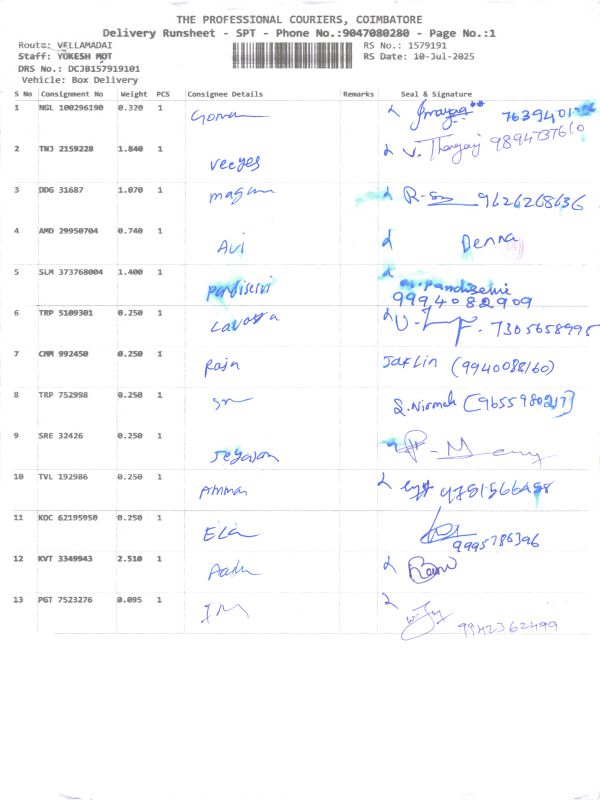 THE PROFESSIONAL COURIERS, COIMBATORE
Delivery Runsheet - SPT - Phone No.:9047080280 - Page No.:1
Route: VELLAMADAI RS No.: 1579191
Staff: YOKESH MOT RS Date: 10-Jul-2025
DRS No.: DCJB157919101
Vehicle: Box Delivery
S No Consignment No Weight PCS Consignee Details Remarks Seal & Signature
1 NGL 100296190 0.320 1
2 TNJ 2159228 1.840 1 Veeyes V. Thangaraj 9894737610
3 DDG 31687 1.070 1 9626268636
4 AMD 29950704 0.740 1 Avi Denna
5 SLM 373768004 1.400 1 Pandiselvi M. Pandiselvi
9994082909
6 TRP 5109301 0.250 1 7305658995
7 CMM 992450 0.250 1 Raja Jaklin (9940088160)
8 TRP 752998 0.250 1 S. Nirmala (9655980217)
9 SRE 32426 0.250 1 Jegajan
10 TVL 192986 0.250 1 Amman 9751566488
11 KOC 62195950 0.250 1 Ela 9995786396
12 KVT 3349943 2.510 1
13 PGT 7523276 0.095 1 9942362499